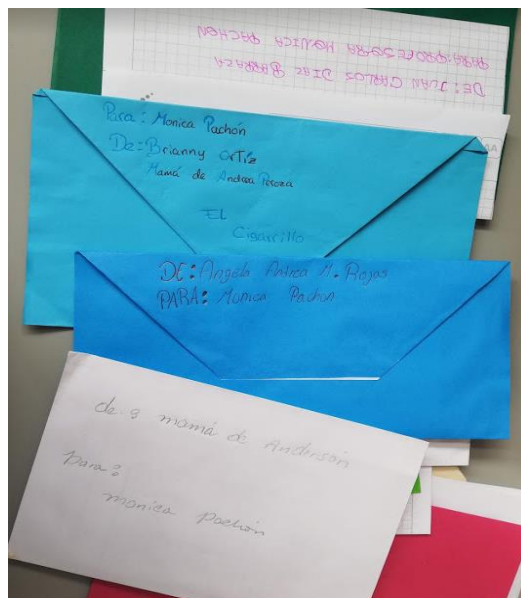 DE: JUAN CARLOS DIAZ BARRAZA
PARA: PROFESORA MONICA PACHON
Para: Monica Pachón
De: Brianny Ortiz
Mamá de Andrea Peroza
EL
Cigarrillo
DE: Angela Patrica M. Rojas
PARA: Monica Pachon
de: mamá de Anderson
para:
monica pachón